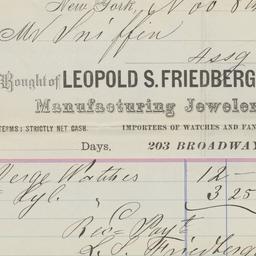 New York, Nov 8th
Mr Sniffin
Assg
Bought of LEOPOLD S. FRIEDBERG
Manufacturing Jeweler
TERMS: STRICTLY NET CASH. IMPORTERS OF WATCHES AND FAN
Days. 203 BROADWAY
Verge Watches 12 —
Cyl. " 3 25
Rec'd Payt
L. S. Friedberg